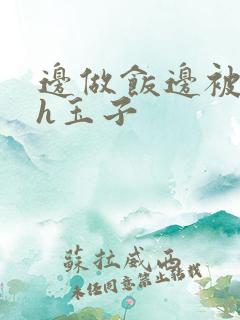 邊做飯邊被
h玉子
蘇拉威西
未經同意禁止轉載